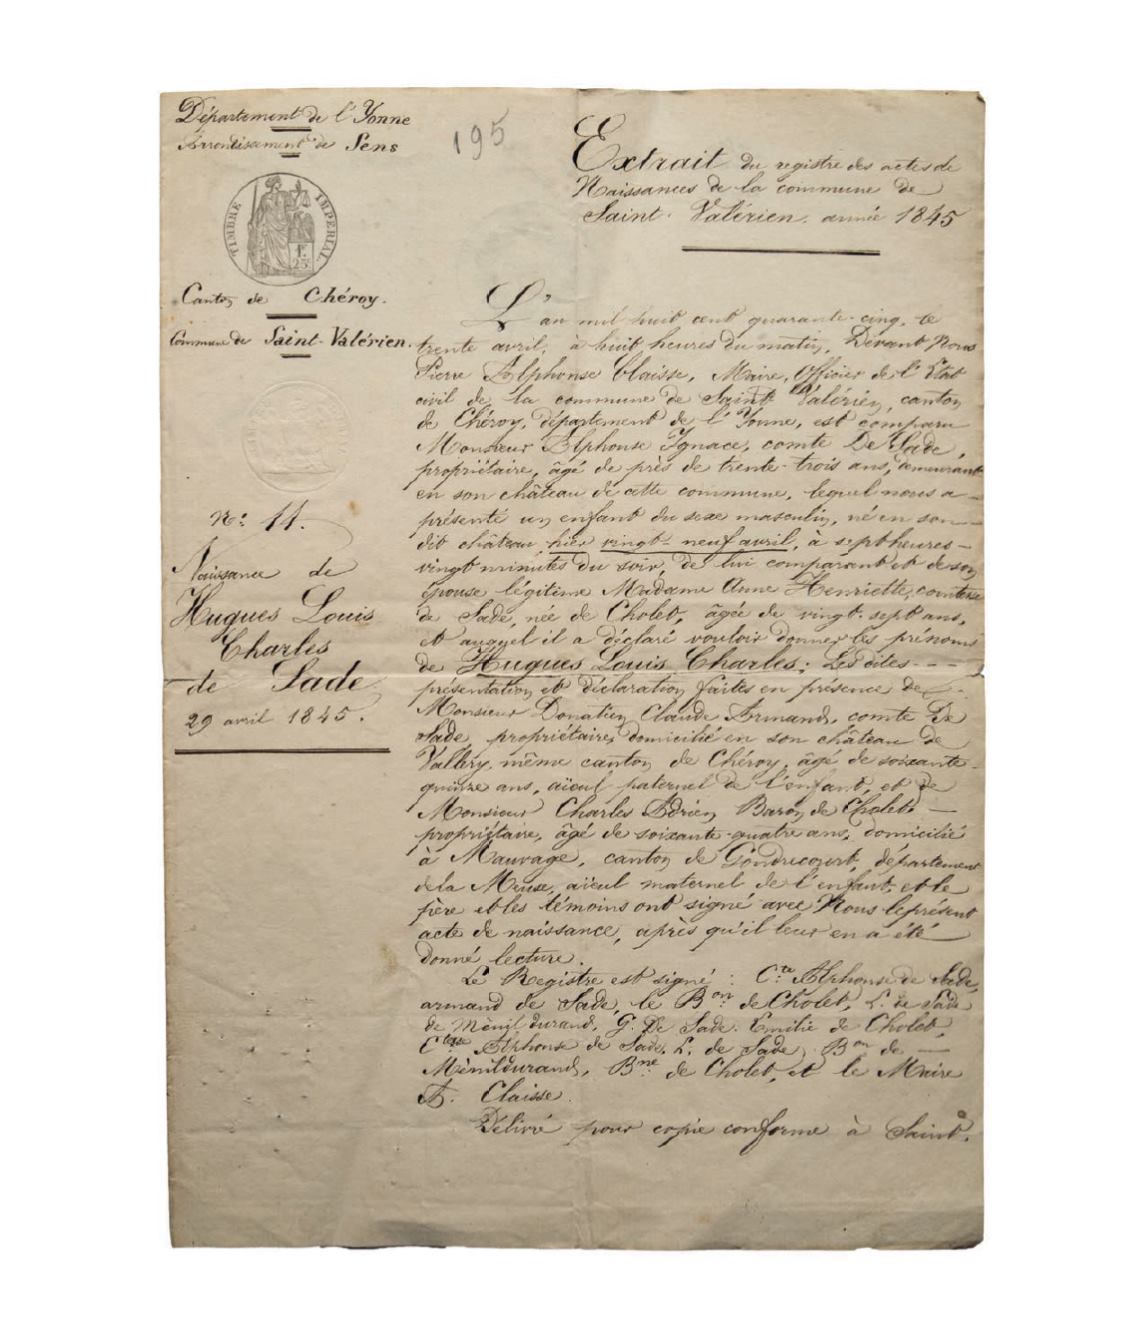 Département de l'Yonne
Arrondissement de Sens
195
TIMBRE IMPERIAL
1F. 25c
Canton de Chéroy.
Commune de Saint-Valérien.
N° 11.
Naissance de
Hugues Louis
Charles
de Sade
29 avril 1845.
Extrait du registre des actes de
Naissances de la commune de
Saint-Valérien. année 1845
L'an mil huit cent quarante-cinq, le
trente avril, à huit heures du matin, Devant Nous
Pierre Alphonse Claisse, Maire, Officier de l'Etat
civil de la commune de Saint Valérien, canton
de Chéroy, département de l'Yonne, est comparu
Monsieur Alphonse Ignace, comte De Sade,
propriétaire, âgé de près de trente-trois ans, demeurant
en son château de cette commune, lequel nous a
présenté un enfant du sexe masculin, né en son
dit château hier vingt-neuf avril, à sept heures
vingt minutes du soir, de lui comparant et de son
épouse légitime Madame Anne Henriette, comtesse
de Sade, née de Cholet, âgée de vingt-sept ans,
et auquel il a déclaré vouloir donner les prénoms
de Hugues Louis Charles; Les dites - - -
présentation et déclaration faites en présence de
Monsieur Donatien Claude Armand, comte De
Sade propriétaire, domicilié en son château de
Vallery, même canton de Chéroy, âgé de soixante-
quinze ans, aïeul paternel de l'enfant, et de
Monsieur Charles Adrien Baron de Cholet —
propriétaire, âgé de soixante-quatre ans, domicilié
à Mauvage, canton de Gondrecourt, département
de la Meuse, aïeul maternel de l'enfant, et le
père et les témoins ont signé avec Nous le présent
acte de naissance, après qu'il leur en a été
donné lecture.
Le Registre est signé : Cte Alphonse de Sade,
armand de Sade, le Bon de Cholet, L. de Sade
de Ménildurand, G. De Sade. Emilie de Cholet,
Ctesse Alphonse de Sade, L. de Sade, Bon de —
Ménildurand, Bne de Cholet, et le Maire
A. Claisse.
Délivré pour copie conforme à Saint.